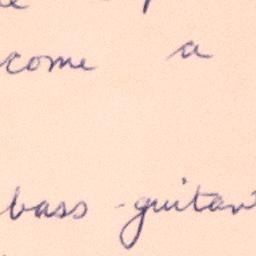 come a
bass guitar